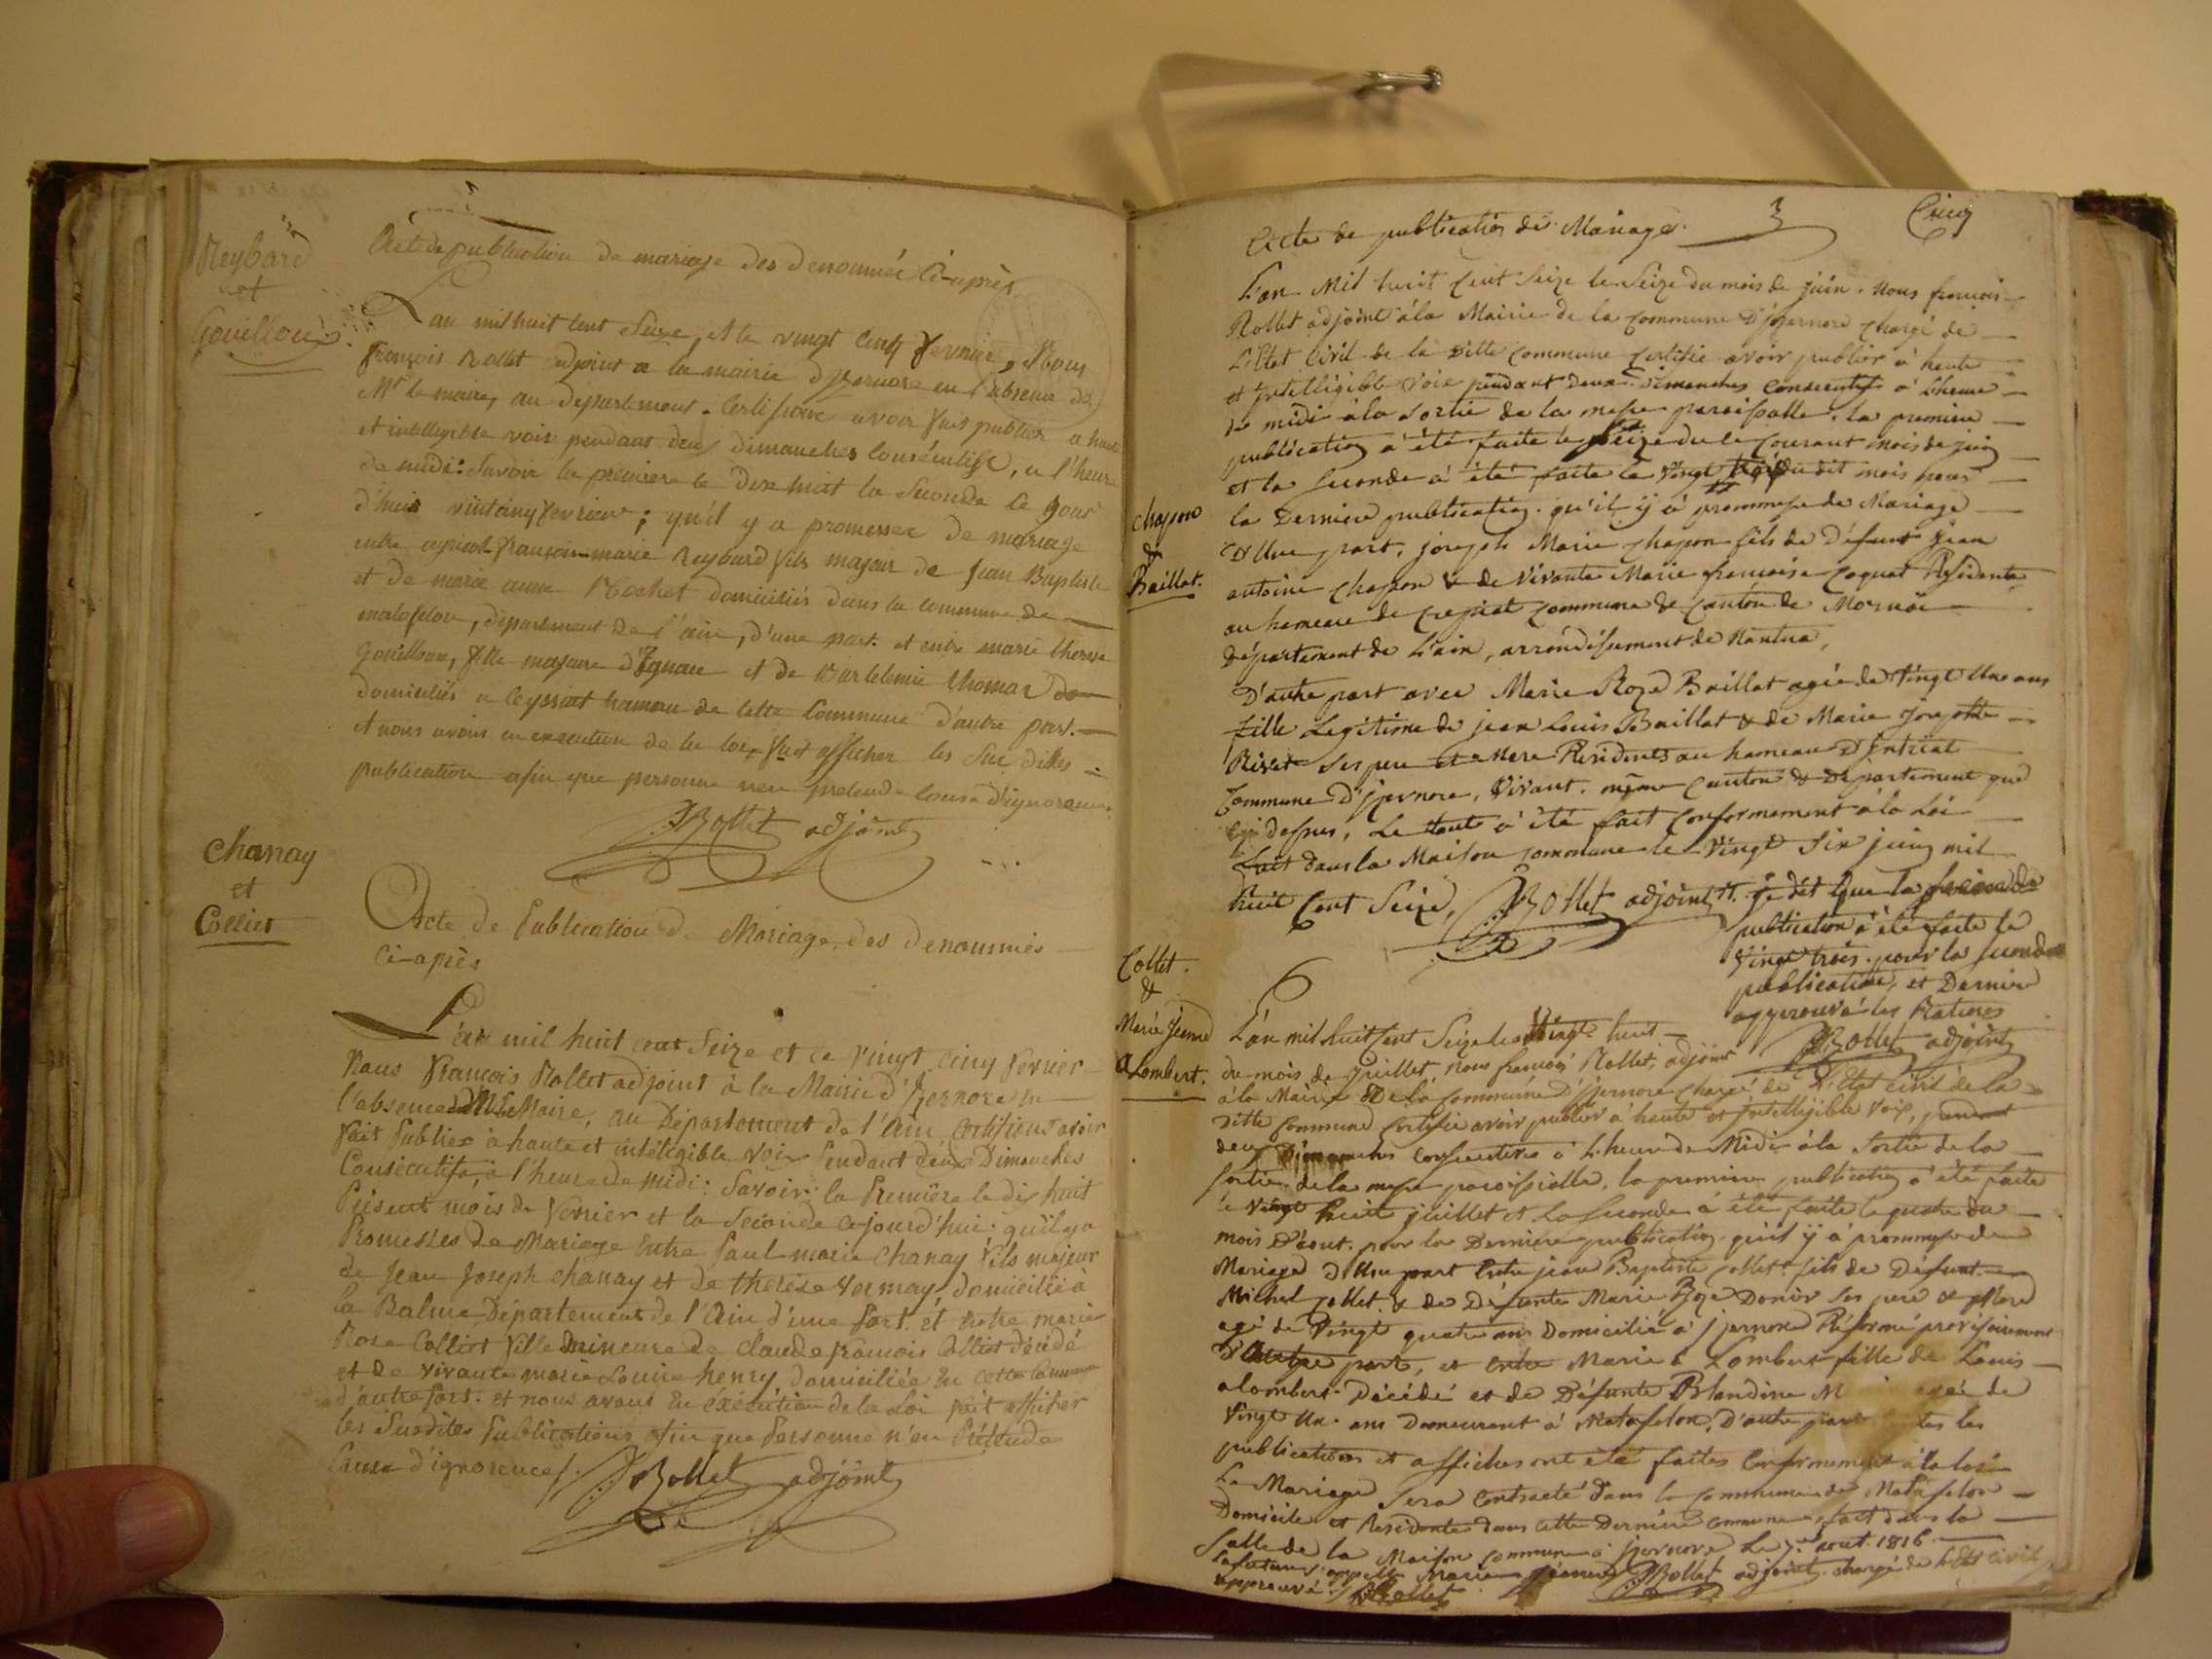 Reybard
et
Gouilloux
Act de publication de mariage des denommés Ci-après
L'an mil huit cent Seize et le vingt cinq fevrier, Nous
françois Rollet adjoint a la mairie d'izernore en l'absence de
Mr le maire, au Departement. Certifions avoir fait publier a haute
et intelligible voix pendant deux dimanches consécutifs, a l'heure
de midi: Savoir la premiere le Dix huit la Seconde le jour
d'huis vintcinq fevrier; qu'il y a promesse de mariage
entre françois-marie Reybard fils majeur de Jean Baptiste
et de marie anne Rochet domiciliés dans la commune de
matafelon, département de l'ain, d'une part. et entre marie therese
Gouilloux, fille majeure d'Ignace et de Bartelemie thomas
domiciliés a Ceyssiat hameau de cette Commune d'autre part.
et nous avons en execution de la loi fait afficher les Sus dittes
publication afin que personne n'en pretende cause d'ignorance.
Rollet adjoint
Chanay
et
Colliet
Acte de Publication de Mariage, des denommés
Ci-après
L'an mil huit cent Seize et le vingt cinq fevrier
Nous François Rollet adjoint à la Mairie d'Izernore en
l'absence de Mr Le Maire, au Département de l'Ain Certifions avoir
fait Publier à haute et intéligible voix Pendant deux Dimanches
Consécutifs, à l'heure de midi: Savoir: la Premiere le dix huit
Présent mois de Fevrier et la Seconde ce jourd'hui: qu'il y a
Promesses de Mariage Entre Paul-marie Chanay fils majeur
de Jean Joseph Chanay et de thérèse vermay, domicilié à
la Balme Département de l'Ain d'une Part. et entre marie
Rose Colliet fille mineure de claude françois Colliet décédé
et de vivante marie Louise henry domiciliée En cette Commune
d'autre Part. et nous avons En éxécution de la Loi fait afficher
les Susdites Publications afin que Personne n'en Prétende
Cause d'ignorence.
Rollet adjoint
Cinq
Acte de publication de Mariage.
L'an Mil huit Cent Seize le Seize du mois de juin. Nous françois
Rollet adjoint à la Mairie de la Commune D'jzernore Chargé de
L'Etat Civil de la ditte Commune Certifie avoir publier à haute
et jntelligible voix pendant deux Dimanches Consecutifs à L'heure
de midi à la Sortie de la messe paroissalle. la premiere
publication à été faite le Seize du Courant mois de juin
et la Seconde à été faite le vingt trois du dit mois pour
la Derniere publication. qu'il ÿ à prommesse de Mariage
D'Une part. joseph Marie Chapon fils de Défunt jean
antoine Chapon & de vivante Marie françoise Coquet Residente
au hameau de Crepiat Commune & Canton de Mornay
département de L'ain, arrondissement de Nantua,
Chapon
&
Baillat.
D'autre part avec Marie Roze Baillat agée de Vingt Un ans
fille Legitime de jean Louis Baillat & de Marie Josephte
Rivet Ses pere et Mere Residents au hameau D'Intriat
Commune D'jzernore, Vivant. même Canton & Département que
Cy dessus, Le tout à été fait Conformement à la Loi
Fait dans la Maison Commune le Vingt Six juin mil
huit Cent Seize, Rollet adjoint
je dit que la
publication à été faite le
Vingt trois. pour la seconde
publication, et Derniere
approuvé les Ratures
Rollet adjoint
Collet
&
Marie Jeanne
aLombert.
6
L'an mil huit Cent Seize le Vingt huit
du mois de juillet, nous françois Rollet, adjoint
à la Mairie de la Commune D'jzernore Chargé de L'Etat Civil de la
Ditte Commune Certifie avoir publier à haute et jntelligible Voix, pendant
deux Dimanches Consecutives à L'heure de Midi à la Sortie de la
sortie de la messe paroissialle, la premiere publication à été faite
le Vingt huit juillet et La seconde à été faite le quatre du
mois D'aout. pour la Derniere publication. qu'il ÿ à prommesse de
Mariage D'Une part Entre jean Baptiste Collet fils de Défunt
Michel Collet & de Défunte Marie Roze Ses pere & Mere
agé de Vingt quatre ans Domicilié à jzernore Réformé provisoirement
D'Autre part, et entre Marie a Lombert fille de Louis
alombert Décédé et de Défunte Blandine agée de
Vingt Un ans Demeurant à Matafelon, D'autre part les
publications et affiches ont été faites Conformement à la loi
Le Mariage Sera Contracté dans la Commune de Matafelon
Domicile et Residente dans cette Derniere Commune, fait dans la
Salle de la Maison Commune à jzernore Le 7e aout 1816.
La future appelle Marie Jeanne Rollet adjoint chargé de L'Etat Civil
approuvé. Rollet